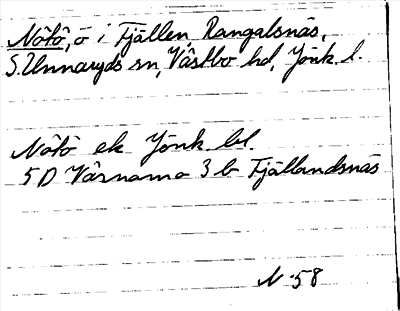 Nötö, ö i Fjällen Rangalsnäs,
S. Unnaryds sn, Västbo hd, Jönk. l.
Nötö ek Jönk. bl.
5D Värnamo 3b Fjällandsnäs
N-58